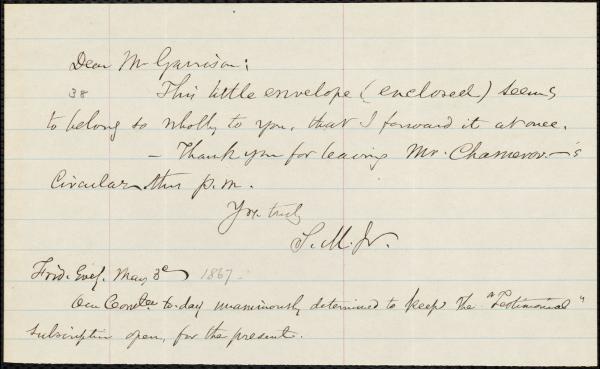 Dear Mr Garrison:
38 This little envelope (enclosed) seems
to belong so wholly to you, that I forward it at once.
— Thank you for leaving Mr. Chamerov—'s
Circular this p.m.
Yrs. truly
S. M. Jr.
Frid. Eveg. May 3d 1867—
Our Comtee to-day unanimously determined to keep the "Testimonial"
subscription open, for the present.